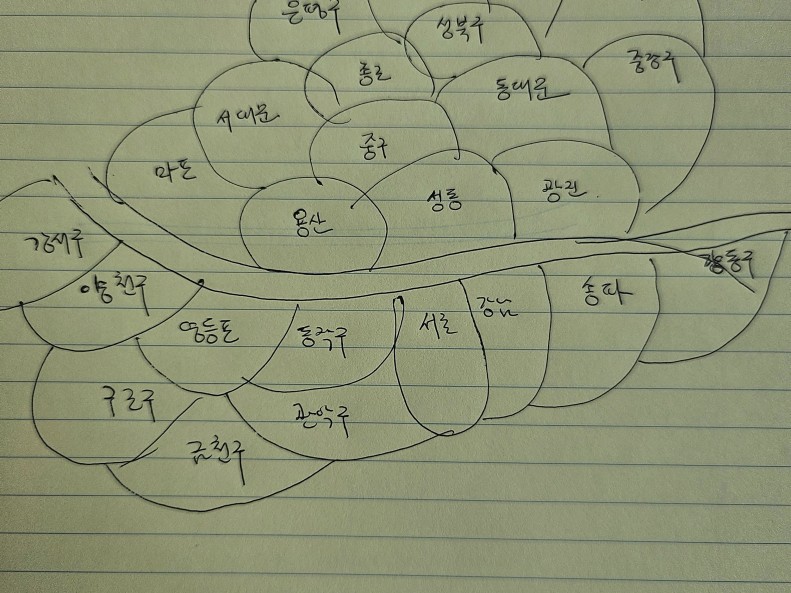 은평구
성북구
종로
중랑구
동대문
서대문
중구
마포
성동
광진
용산
강서구
양천구
강동구
영등포
동작구
서초
강남
송파
구로구
관악구
금천구